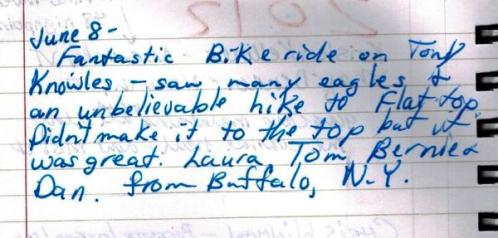 June 8 -
Fantastic Bike ride on Tony
Knowles - saw many eagles &
an unbelievable hike to Flat top.
Didn't make it to the top but it
was great. Laura, Tom, Bernie &
Dan. from Buffalo, N.Y.